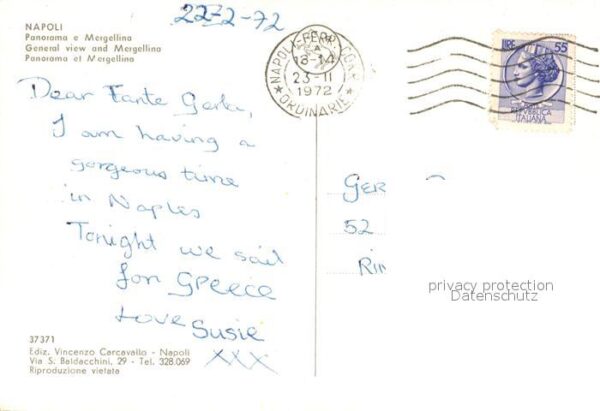 22-2-72
NAPOLI
Panorama e Mergellina
General view and Mergellina
Panorama et Mergellina
NAPOLI-FERR.
18-19
23-II
1972
★ORDINARIE★
LIRE 55
REPUBBLICA
ITALIANA
Dear Tante Gerla,
I am having a
gorgeous time
in Naples
Tonight we sail
for Greece
Love Susie
XXX
GER
52
RIN
privacy protection
Datenschutz
37371
Ediz. Vincenzo Carcavallo - Napoli
Via S. Baldacchini, 29 - Tel. 328.069
Riproduzione vietata